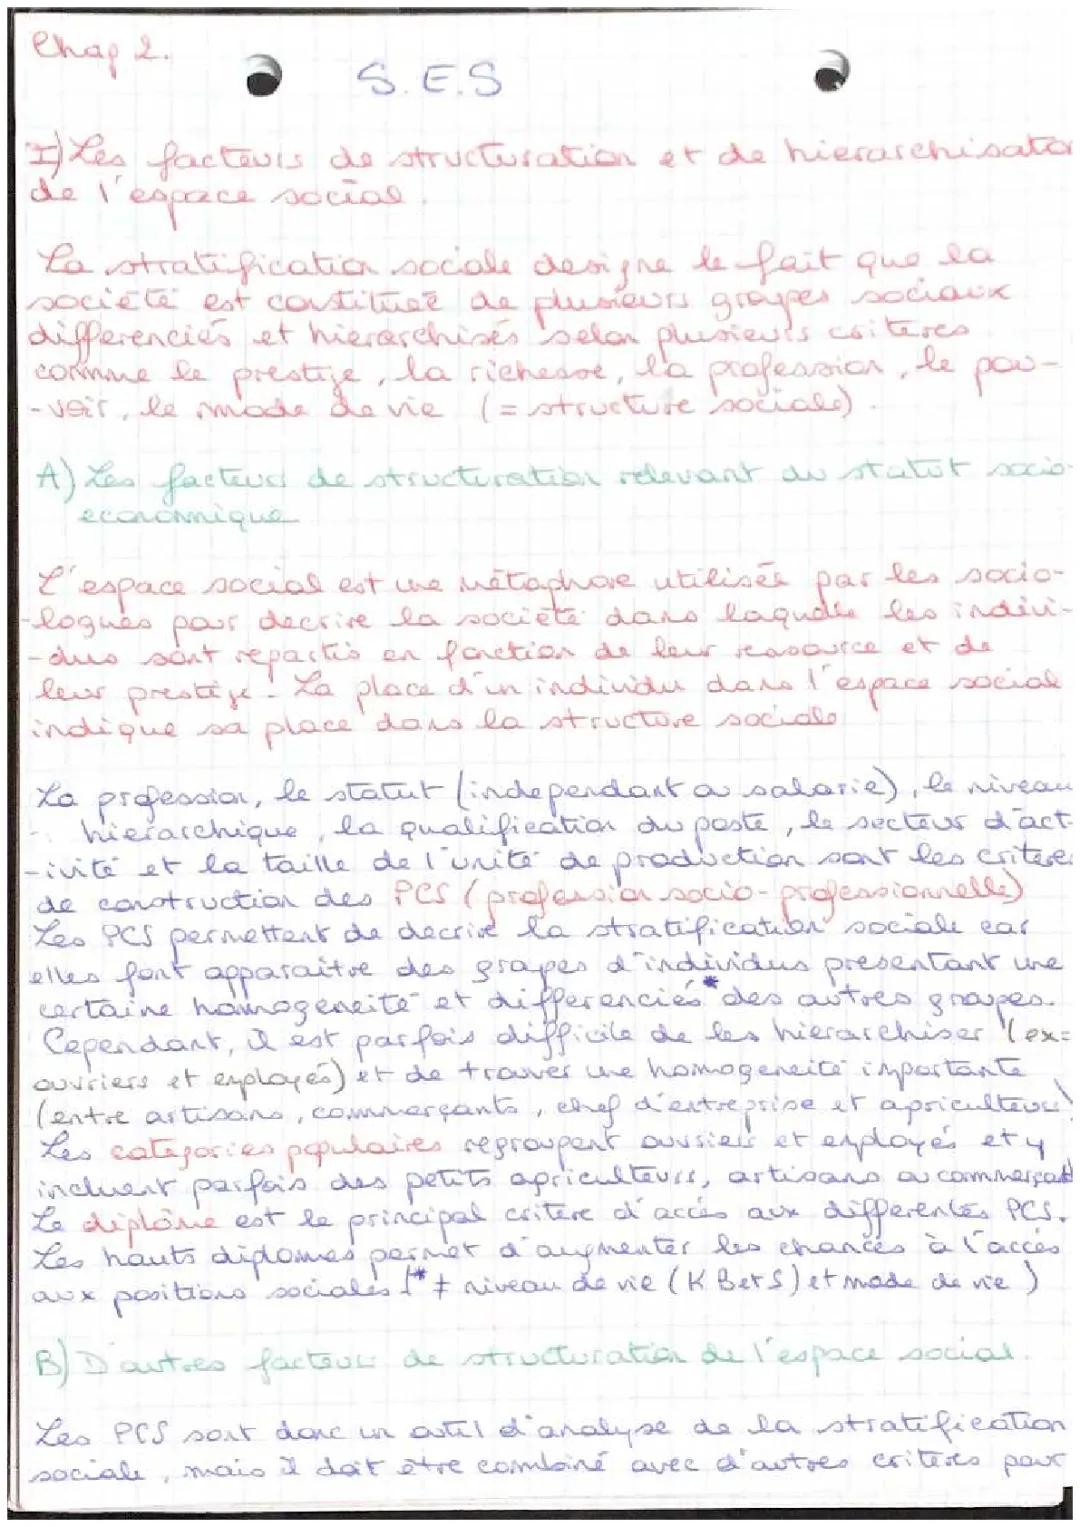 Chap 2.
S.E.S
I) Les facteurs de structuration et de hierarchisation
de l'espace social.
La stratification sociale designe le fait que la
société est constituée de plusieurs groupes sociaux
differenciés et hierarchisés selon plusieurs criteres
comme le prestige, la richesse, la profession, le pou-
-voir, le mode de vie (= structure sociale).
A) Les facteurs de structuration relevant du statut socio-
economique
L'espace social est une métaphore utilisée par les socio-
-logues pour decrire la société dans laquelle les indivi-
-dus sont repartis en fonction de leur ressource et de
leur prestige. La place d'un individu dans l'espace social
indique sa place dans la structure sociale
La profession, le statut (independant ou salarie), le niveau
hierarchique, la qualification du poste, le secteur d'act-
-ivité et la taille de l'unité de production sont les criteres
de construction des PCS (profession socio-professionnelle)
Les PCS permettent de decrire la stratification sociale car
elles font apparaitre des groupes d'individus presentant une
certaine homogeneité et differenciés* des autres groupes.
Cependant, il est parfois difficile de les hierarchiser (ex=
ouvriers et employés) et de trouver une homogeneité importante
(entre artisans, commerçants, chef d'entreprise et agriculteurs)
Les categories populaires regroupent ouvriers et employés et y
incluent parfois des petits agriculteurs, artisans ou commerçant
Le diplôme est le principal critere d'accés aux differentes PCS.
Les hauts diplomes permet d'augmenter les chances à l'accés
aux positions sociales (* ≠ niveau de vie (K B et S) et mode de vie)
B) D'autres facteurs de structuration de l'espace social.
Les PCS sont donc un outil d'analyse de la stratification
sociale, mais il doit être combiné avec d'autres criteres pour